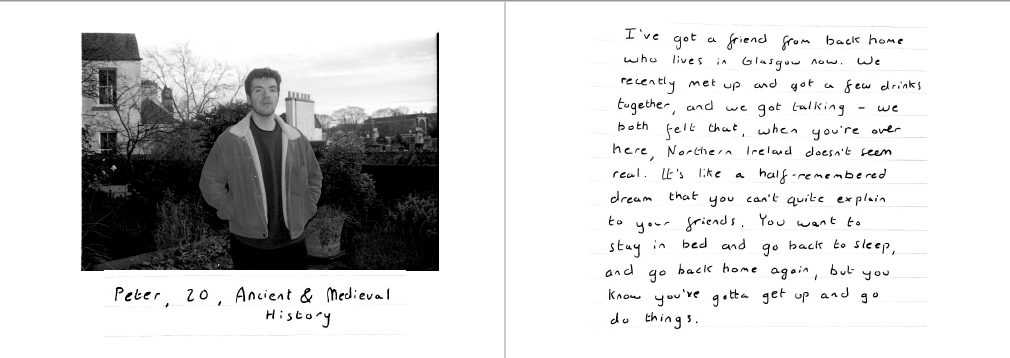 Peter, 20, Ancient & Medieval
History
I've got a friend from back home
who lives in Glasgow now. We
recently met up and got a few drinks
together, and we got talking – we
both felt that, when you're over
here, Northern Ireland doesn't seem
real. It's like a half-remembered
dream that you can't quite explain
to your friends. You want to
stay in bed and go back to sleep,
and go back home again, but you
know you've gotta get up and go
do things.